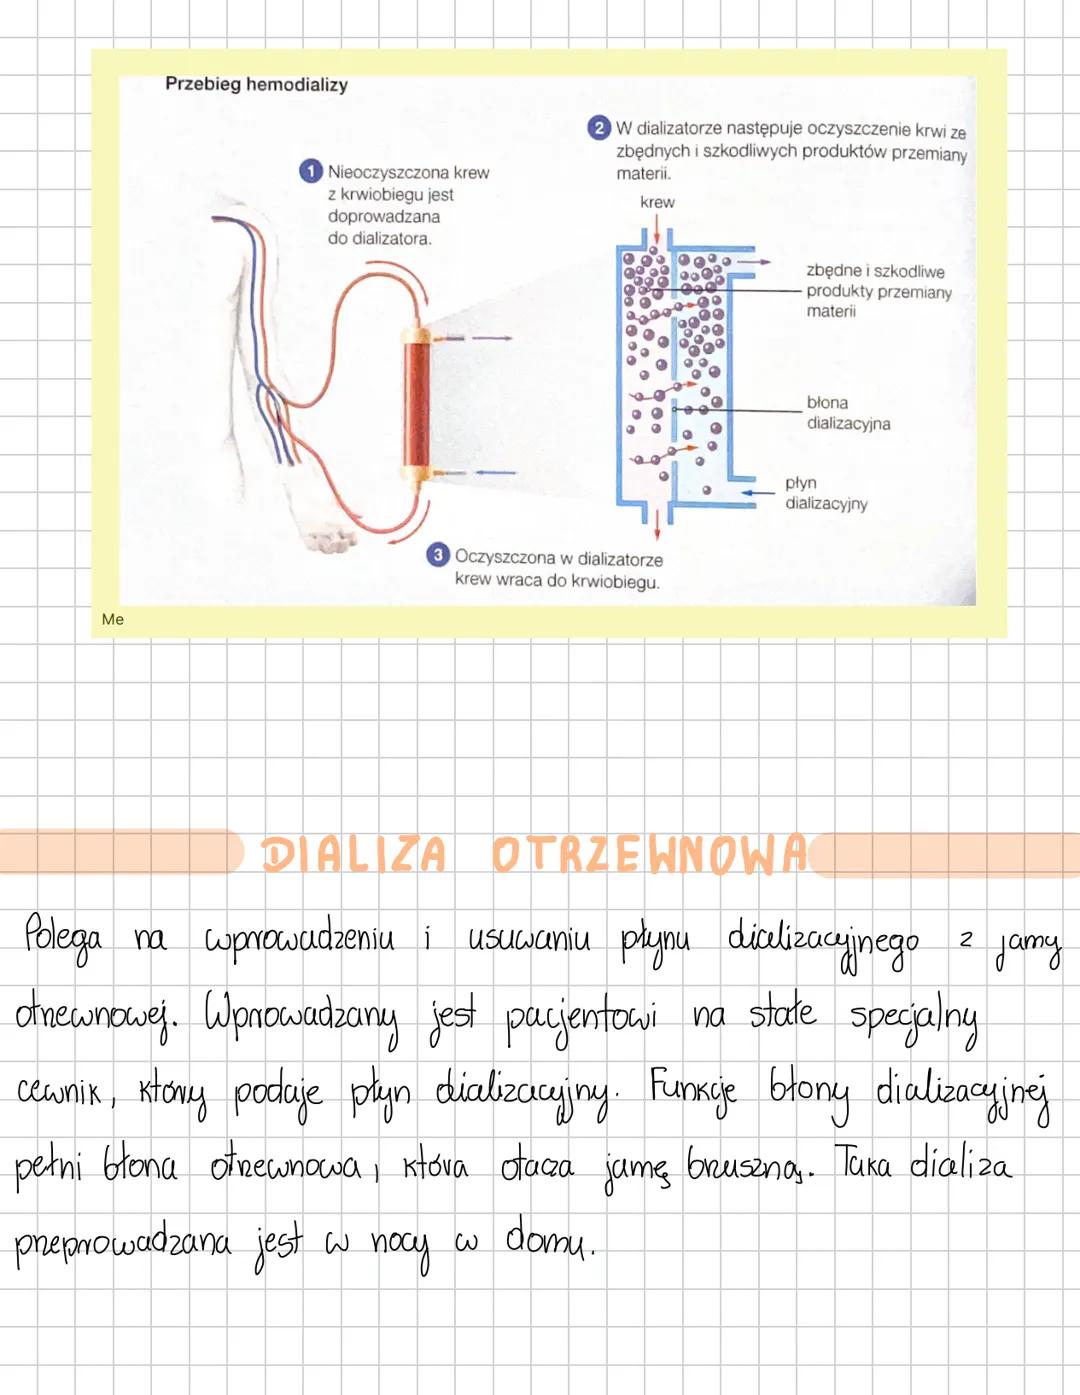 Przebieg hemodializy
1 Nieoczyszczona krew
z krwiobiegu jest
doprowadzana
do dializatora.
2 W dializatorze następuje oczyszczenie krwi ze
zbędnych i szkodliwych produktów przemiany
materii.
krew
zbędne i szkodliwe
produkty przemiany
materii
błona
dializacyjna
płyn
dializacyjny
3 Oczyszczona w dializatorze
krew wraca do krwiobiegu.
Me
DIALIZA OTRZEWNOWA
Polega na wprowadzeniu i usuwaniu płynu dializacyjnego z jamy
otrzewnowej. Wprowadzany jest pacjentowi na stałe specjalny
cewnik, który podaje płyn dializacyjny. Funkcje błony dializacyjnej
pełni błona otrzewnowa, która otacza jamę brzuszną. Taka dializa
przeprowadzana jest w nocy w domu.